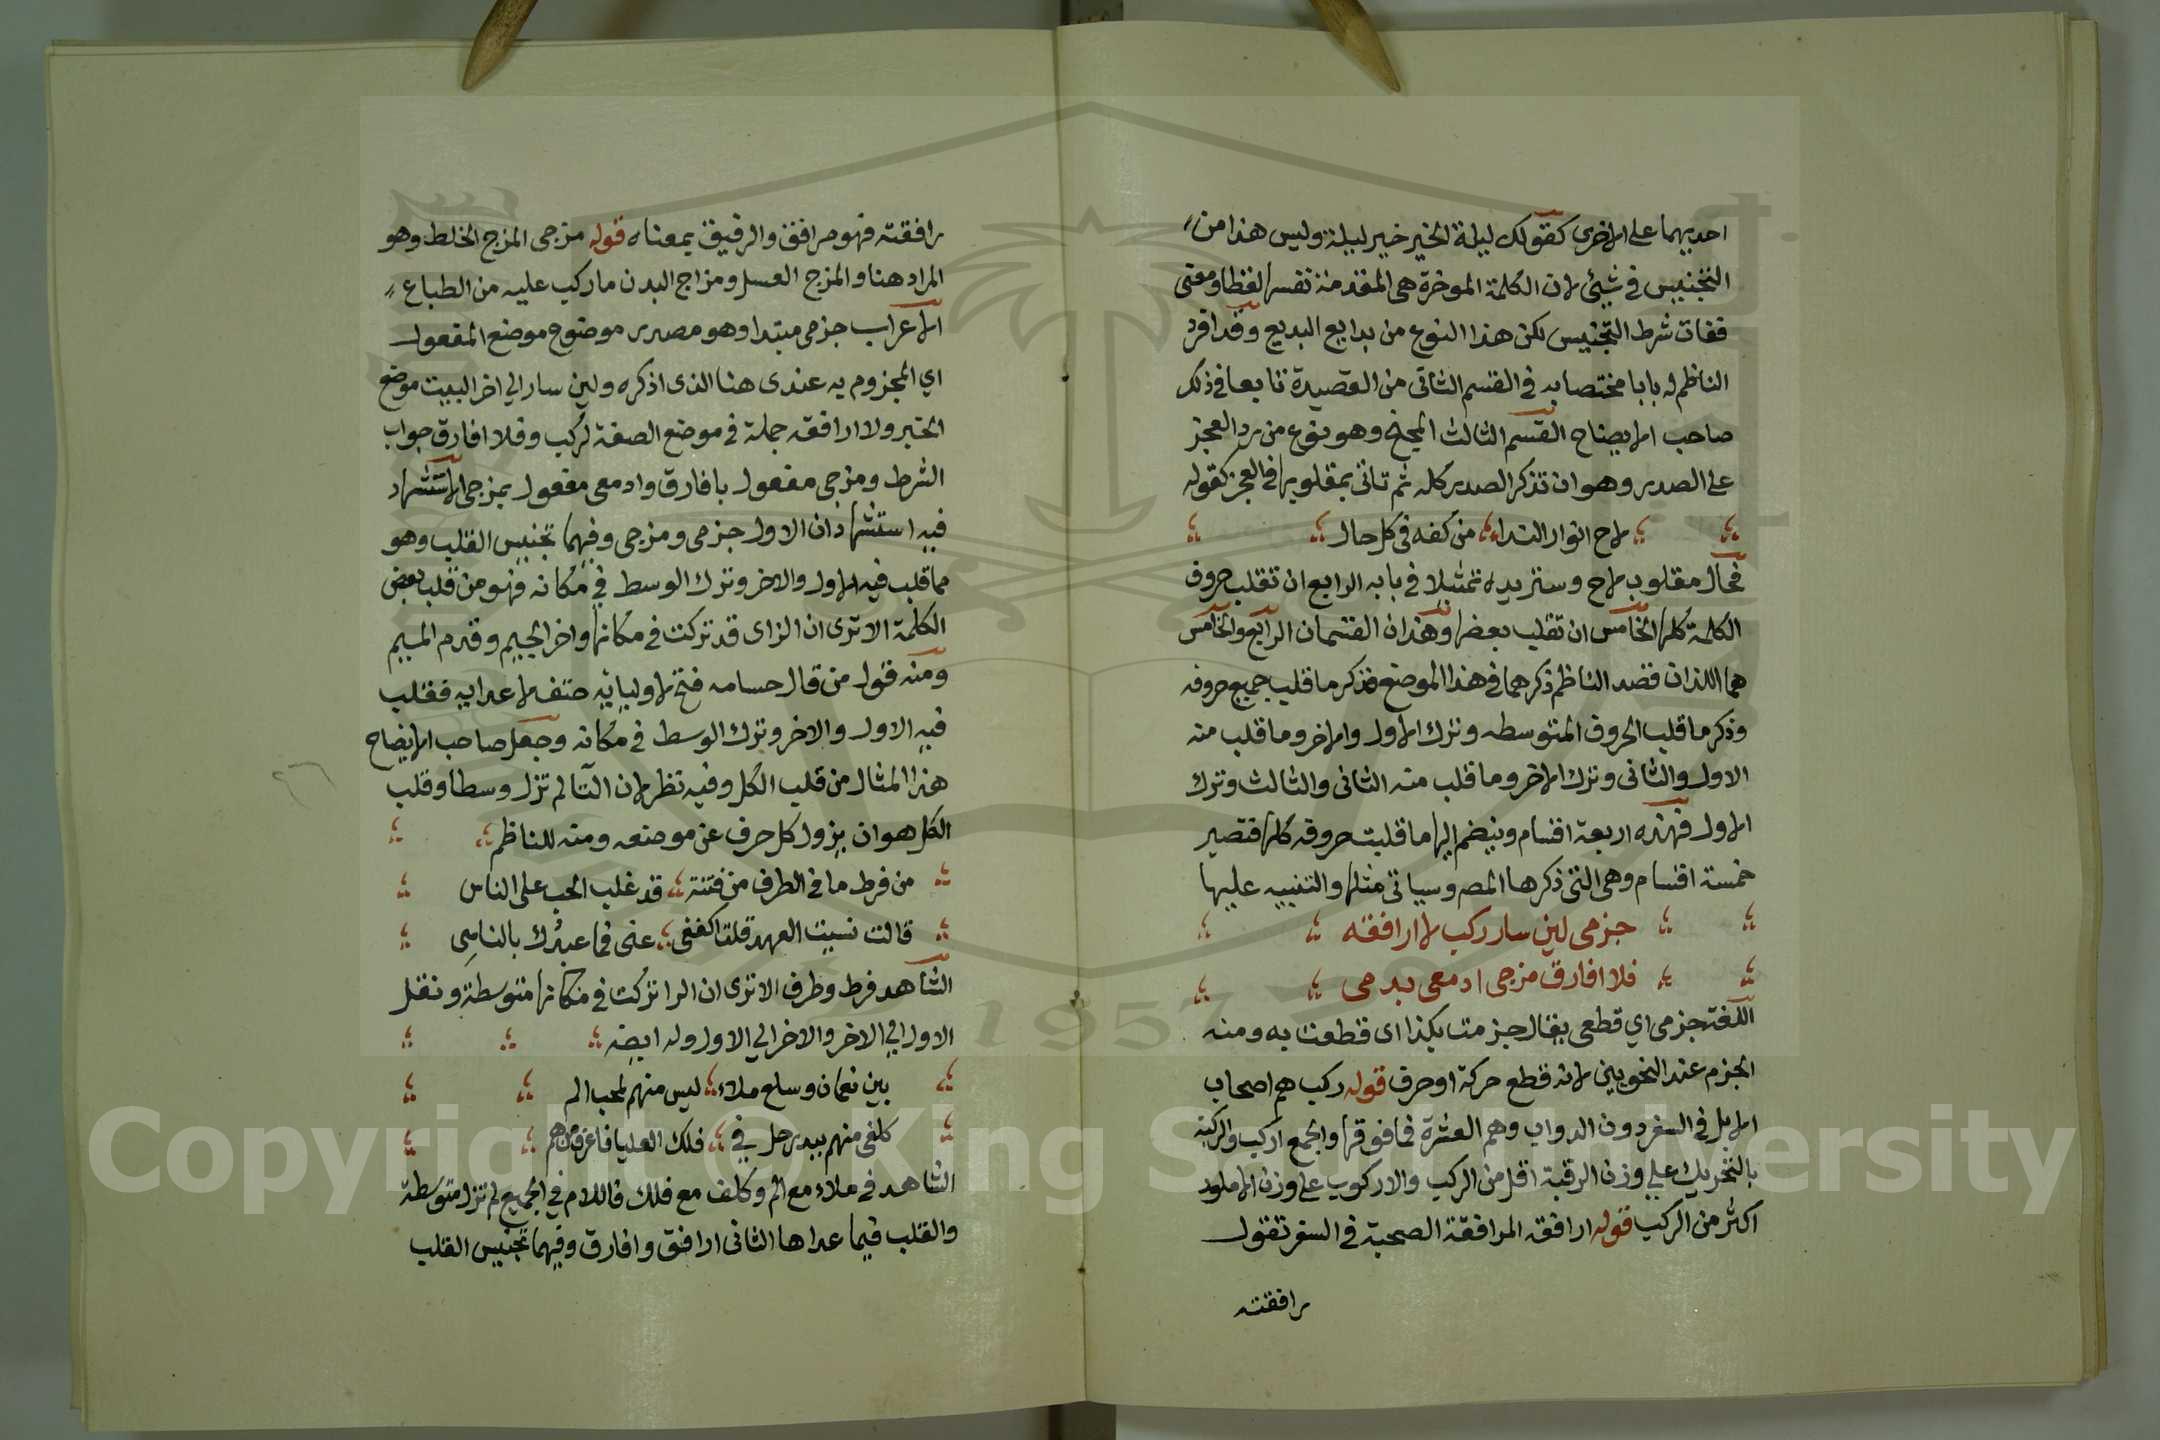 احديهما على الاخرى كقولك ليلة الخير خير ليلة وليس هذا من
التجنيس في شيئ لان الكلمة الموخرة هي المقدمة نفسها لفظا ومعنى
ففات شرط التجنيس لكن هذا النوع من بدايع البديع وقد افرد
الناظم له بابا مختصا به في القسم الثاني من القصيدة تابعا في ذلك
صاحب الايضاح القسم الثالث المجنح وهو نوع من رد العجز
على الصدر وهو ان تذكر الصدر كله ثم تاتى بمقلوبها في العجز كقوله
لاح انوار الندا من كفه في كل حال
فحال مقلوب لاح وسنزيده تمثيلا في بابه الرابع ان تقلب حروف
الكلمة كلها الخامس ان تقلب بعضها وهذان القسمان الرابع والخامس
هما اللذان قصد الناظم ذكرهما في هذا الموضع فذكر ما قلب جميع حروفه
وذكر ما قلب الحروف المتوسطه وترك الاول والاخر وما قلب منه
الاول والثاني وترك الاخر وما قلب منه الثاني والثالث وترك
الاول فهذه اربعة اقسام وينضم اليها ما قلبت حروفه كلها فتصير
خمسة اقسام وهي التي ذكرها المصـ وسياتي مثلها والتنبيه عليها
جزمى لين سار ركب لا ارافقه
فلا افارق مزجى ادمعى بدمى
اللغة جزمي اي قطعي يقال جزمت بكذا اى قطعت به ومنه
الجزم عند النحويين لانه قطع حركة او حرف قوله ركب هم اصحاب
الابل في السفر دون الدواب وهم العشرة فما فوقها والجمع اركب والركبة
بالتحريك على وزن الرقبة اقل من الركب والاركوب على وزن الاملود
اكثر من الركب قوله ارافقه المرافقة الصحبة في السفر تقول
رافقته
رافقته فهو مرافق والرفيق بمعناه قوله مزجى المزج الخلط وهو
المراد هنا والمزج العسل ومزاج البدن ما ركب عليه من الطباع
الاعراب جزمى مبتدا وهو مصدر موضوع موضع المفعول
اي المجزوم به عندى هنا الذى اذكره ولين سار الي اخر البيت موضع
الخبر ولا ارافقه جملة في موضع الصفة لركب وفلا افارق جواب
الشرط ومزجى مفعول بافارق وادمعى مفعول بمزجى الاستشهاد
فيه استشهادان الاول جزمى ومزجى وفيهما تجنيس القلب وهو
مما قلب فيه الاول والاخر وترك الوسط في مكانه فهو من قلب بعض
الكلمة الا ترى ان الزاى قد تركت في مكانها واخر الجيم وقدم الميم
ومنه قول من قال حسامه فتح لاوليايه حتف لاعدايه فقلب
فيه الاول والاخر وترك الوسط في مكانه وجعل صاحب الايضاح
هذا المثال من قلب الكل وفيه نظر لان التا لم تزل وسطا وقلب
الكل هو ان يزول كل حرف عن موضعه ومنه للناظم
من فرط ما في الطرف من فتنة قد غلب الحب على الناس
قالت نسيت العهد قلت اكففى عنى فما عبدك بالناسي
الشاهد فرط وطرف الا ترى ان الرا تركت في مكانها متوسطة ونقل
الاول الي الاخر والاخر الي الاول وله ايضه
بين نعمان وسلع ملاء ليس منهم لمحب الم
كلفى منهم ببدر حل في فلك العليا فاعرف من هم
الشاهد في ملاء مع الم وكلف مع فلك فاللام في الجميع لم تزل متوسطة
والقلب فيما عداها الثانى ارافق وافارق وفيهما تجنيس القلب
Copyright © King Saud University
1957